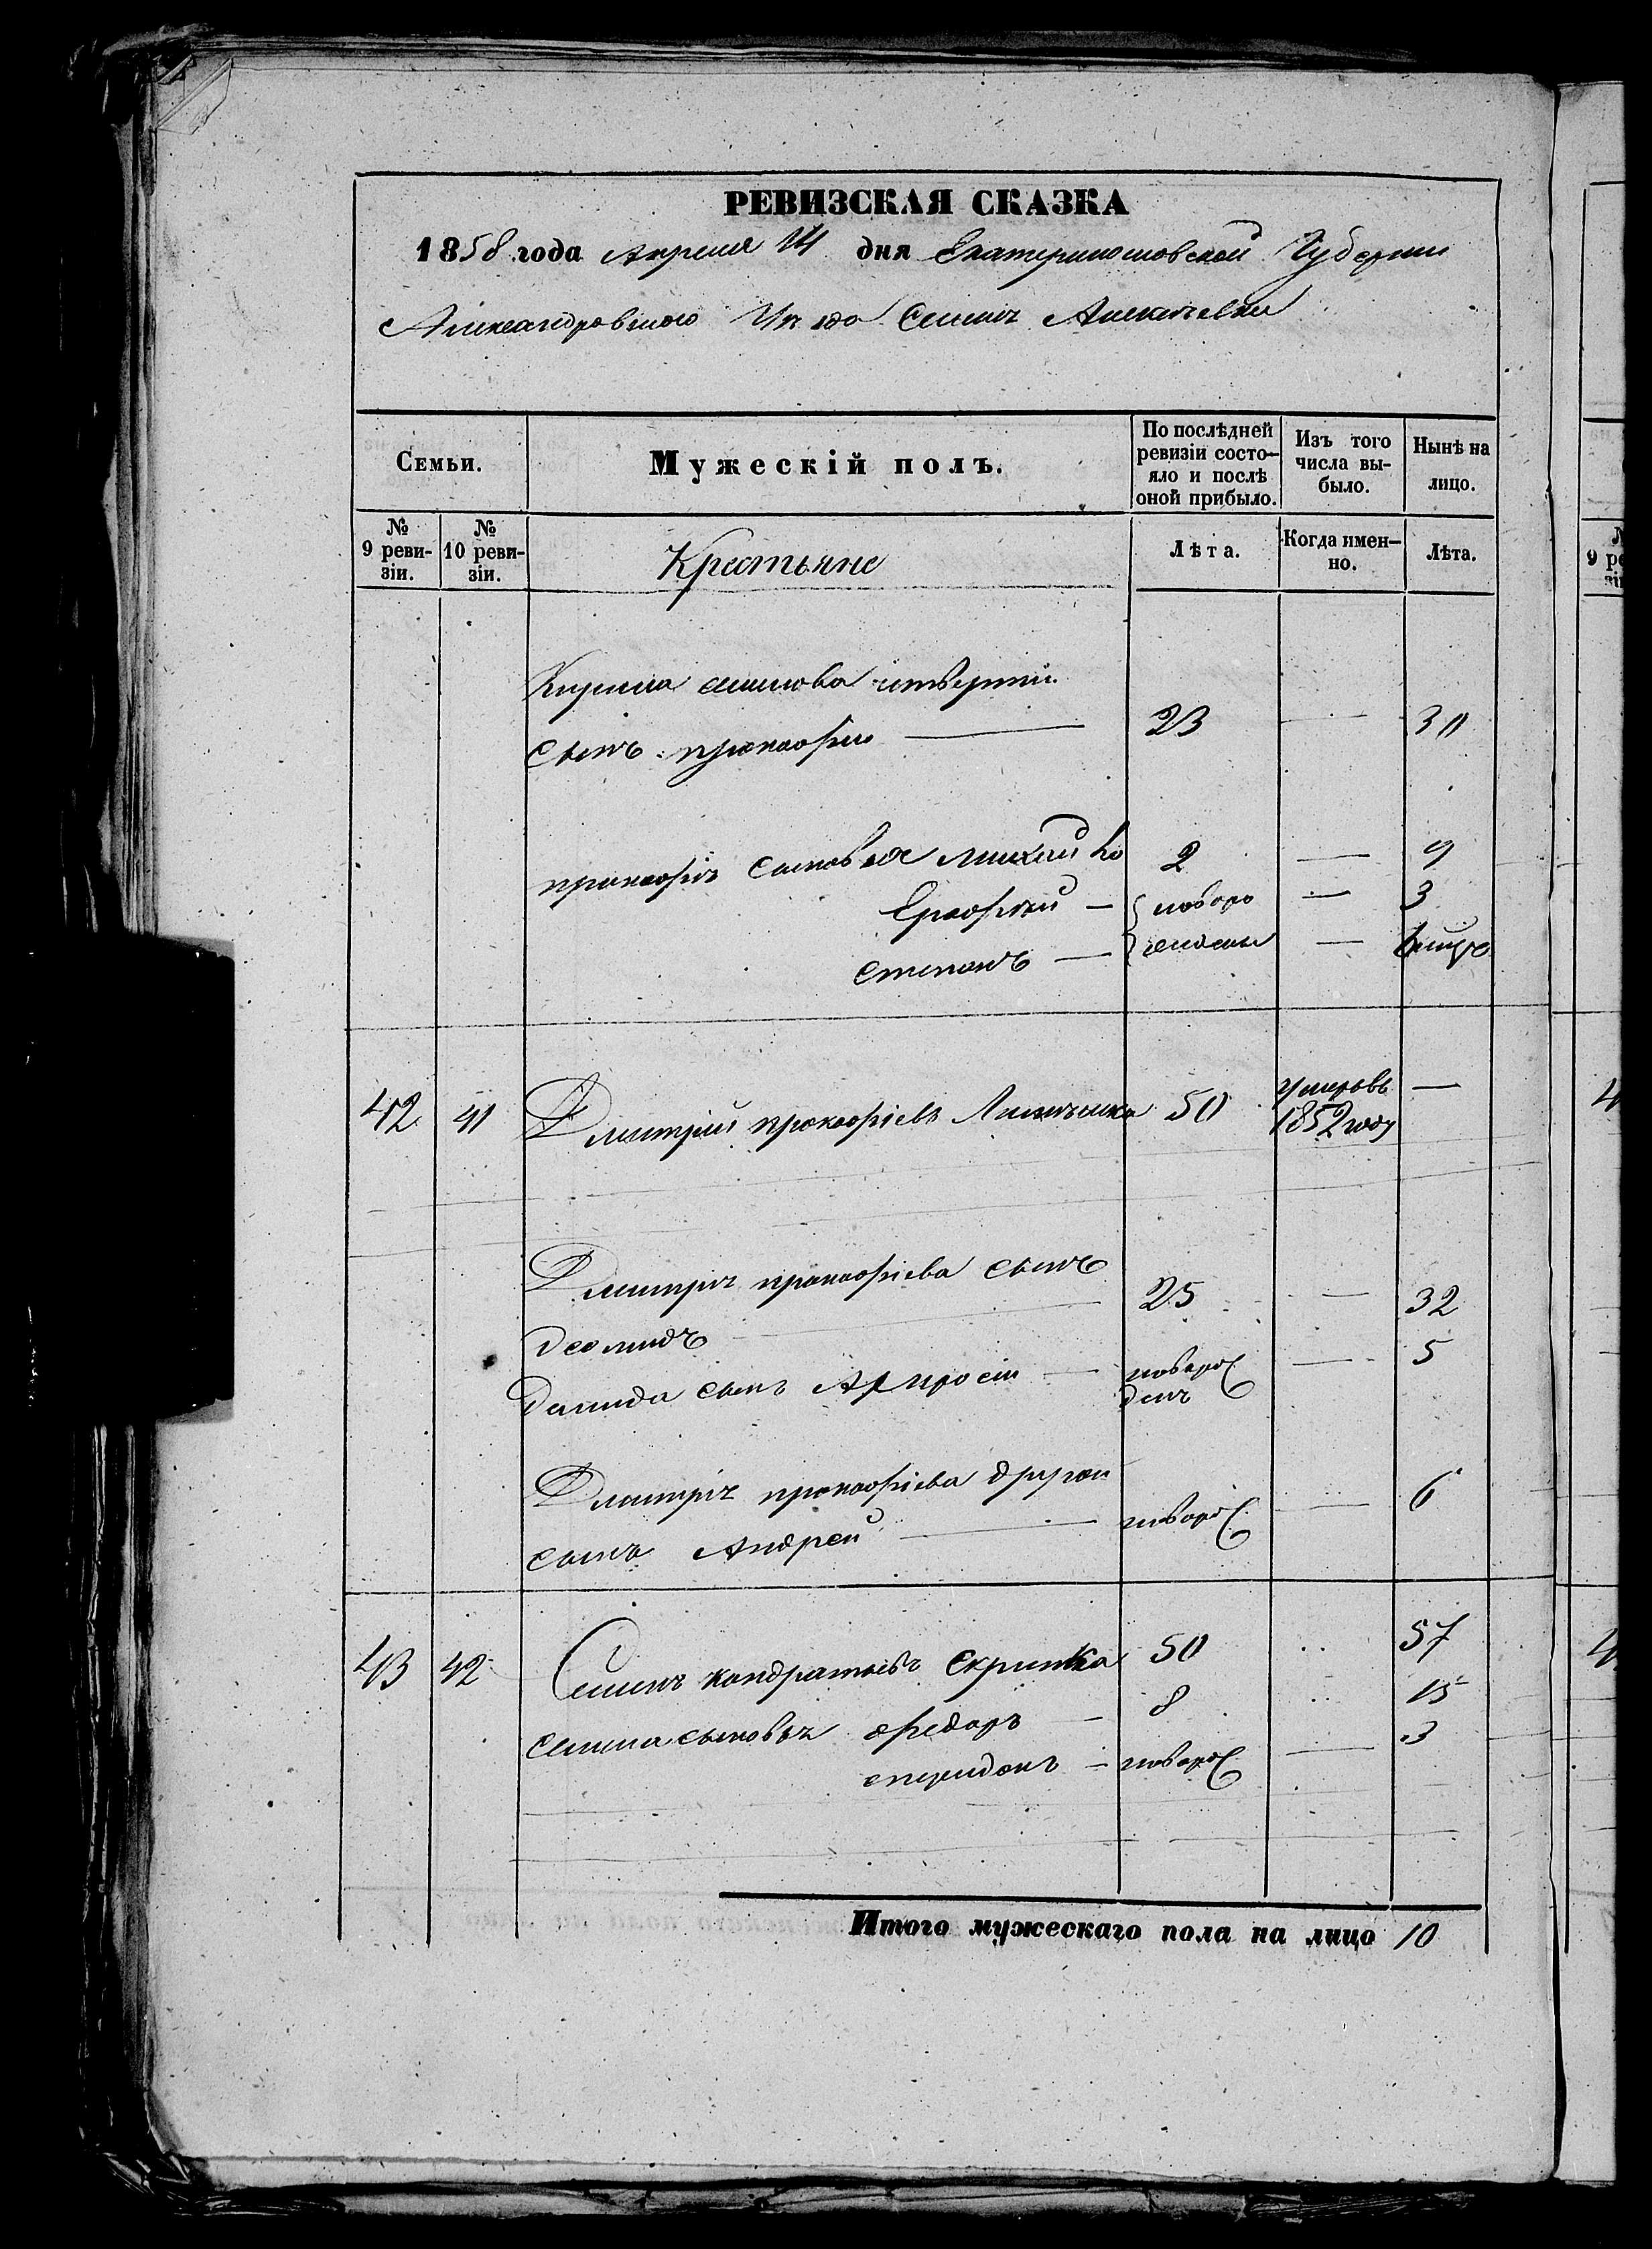 РЕВИЗСКАЯ СКАЗКА
1858 года Апреля 14 дня Екатеринославской Губернии
Александровского Уезда Селенія Алексеевки
Семьи.
Мужескій полъ.
По послѣдней ревизіи состо-яло и послѣ оной прибыло.
Изъ того числа вы-было.
Нынѣ на лицо.
№ 9 реви-зіи.
№ 10 реви-зіи.
Крестьяне
Лѣта.
Когда имен-но.
Лѣта.
Кирила семенова четвертый
сынъ прокофій — 23 — 30
прокофія сыновья Михайло 2 — 9
Ерофѣй — новоро — 3
степанъ — жденные —
42 41 Дмитрій прокофіевъ 50 умеръ въ 1852 году —
Дмитрія прокофіева сынъ
демидъ 25 — 32
Демида сынъ — новорож денъ — 5
Дмитрія прокофіева другой
сынъ Андрей — новорож — 6
43 42 Семенъ кондратьевъ Скрипка 50 57
семена сыновья федоръ — 8 15
спиридонъ — новорож — 3
Итого мужескаго пола на лицо 10
9 ре